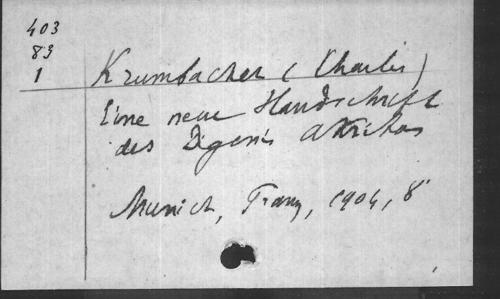 403
83
1
Krumbacher (Charles)
Eine neue Handschrift
des Digenis Akritas
Munich, Franz, 1904, 8°